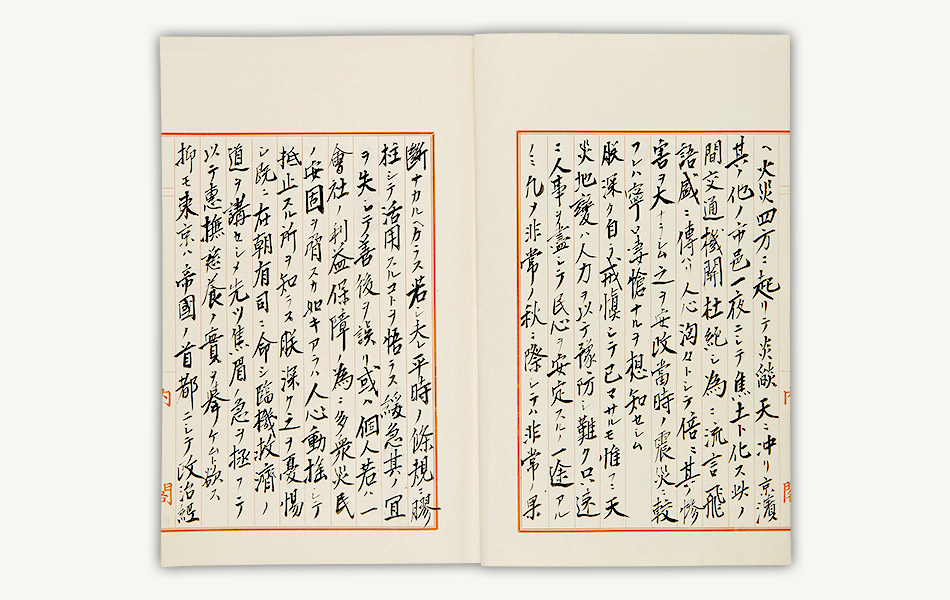 ヘ火災四方ニ起リテ炎燄天ニ冲リ京濱
其ノ他ノ市邑一夜ニシテ焦土ト化ス此ノ
間交通機關杜絶シ為ニ流言飛
語盛ニ傳ハリ人心洶々トシテ倍々其ノ慘
害ヲ大ナラシム之ヲ安政當時ノ震災ニ較
フレハ寧ロ凄愴ナルヲ想知セシム
朕深ク自ラ戒愼シテ已マサルモ惟フニ天
災地變ハ人力ヲ以テ豫防シ難ク只速
ニ人事ヲ盡シテ民心ヲ安定スルノ一途アル
ノミ凡ソ非常ノ秋ニ際シテハ非常ノ果
斷ナカルヘカラス若シ夫レ平時ノ條規ニ膠
柱シテ活用スルコトヲ悟ラス緩急其ノ宜
ヲ失シテ善後ヲ誤リ或ハ個人若ハ一
會社ノ利益保障ノ為ニ多衆災民
ノ安固ヲ脅スカ如キアラハ人心動搖シテ
抵止スル所ヲ知ラス朕深ク之ヲ憂惕
シ既ニ在朝有司ニ命シ臨機救濟ノ
道ヲ講セシメ先ツ焦眉ノ急ヲ拯フテ
以テ惠撫慈養ノ實ヲ擧ケムト欲ス
抑モ東京ハ帝國ノ首都ニシテ政治經
内閣